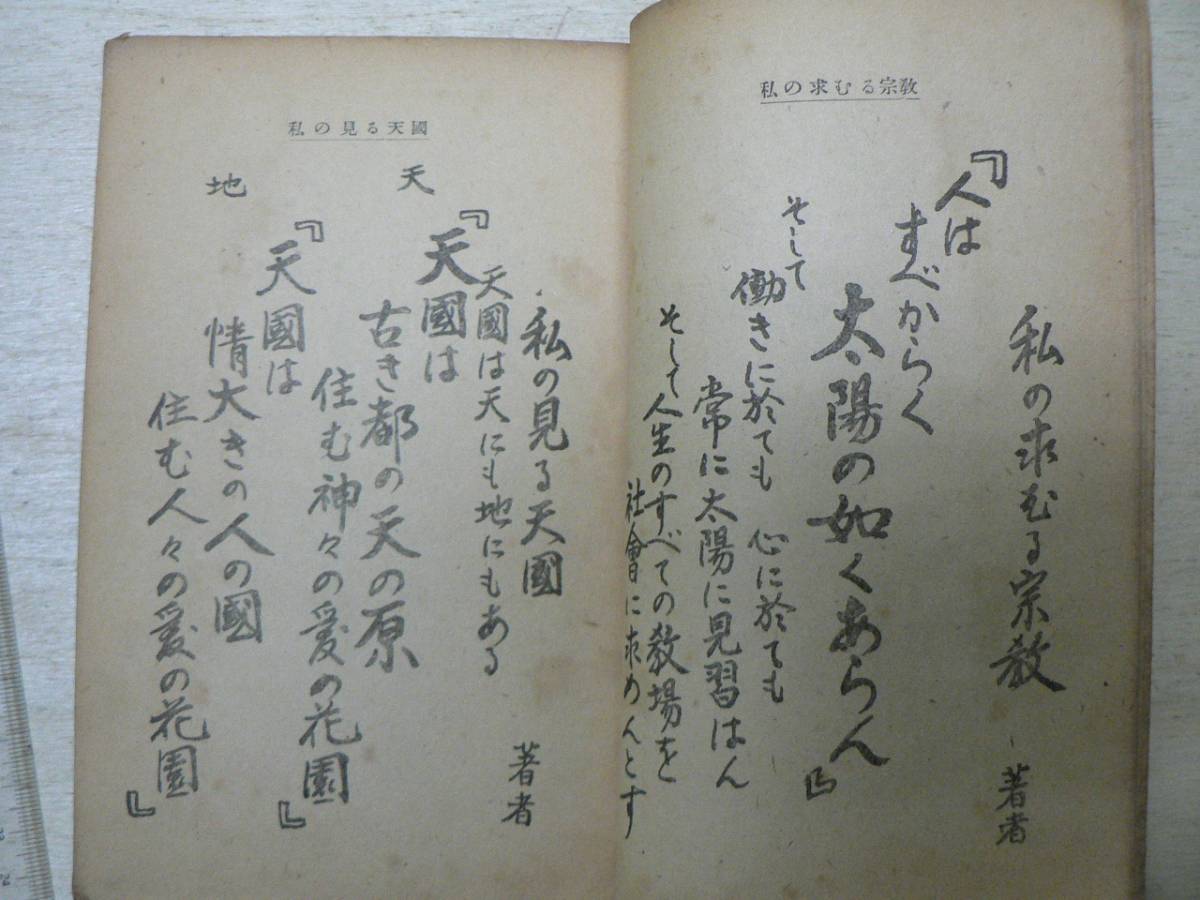 私の求むる宗教
私の求むる宗教
著者
『人は
すべからく
太陽の如くあらん』
そして
働きに於ても 心に於ても
常に太陽に見習はん
そして人生のすべての教場を
社會に求めんとす
私の見る天國
私の見る天國
著者
天國は天にも地にもある
天
『天國は
古き都の天の原
住む神々の愛の花園』
地
『天國は
情大きの人の國
住む人々の愛の花園』